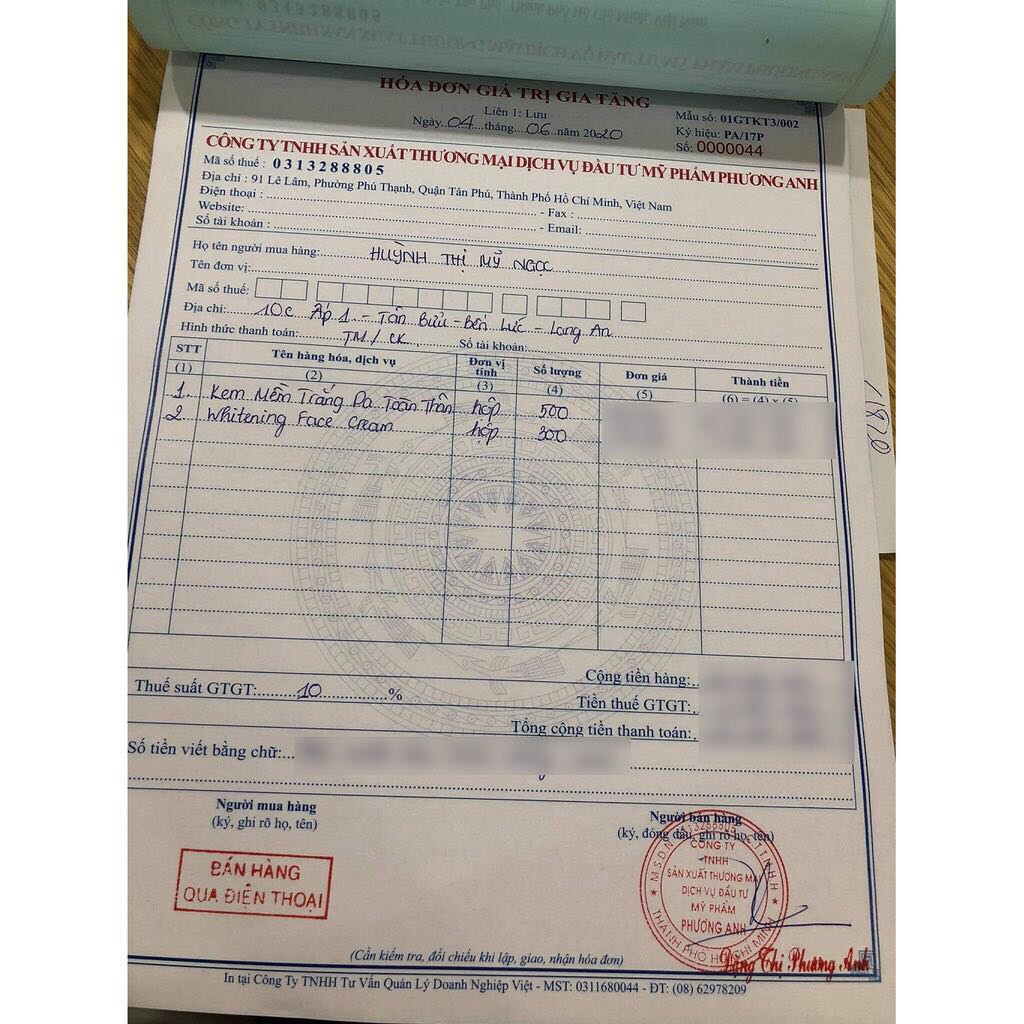 HÓA ĐƠN GIÁ TRỊ GIA TĂNG
Liên 1: Lưu
Ngày 04 tháng 06 năm 2020
Mẫu số: 01GTKT3/002
Ký hiệu: PA/17P
Số: 0000044
CÔNG TY TNHH SẢN XUẤT THƯƠNG MẠI DỊCH VỤ ĐẦU TƯ MỸ PHẨM PHƯƠNG ANH
Mã số thuế : 0313288805
Địa chỉ : 91 Lê Lâm, Phường Phú Thạnh, Quận Tân Phú, Thành Phố Hồ Chí Minh, Việt Nam
Điện thoại : - Fax :
Website: - Email:
Số tài khoản :
Họ tên người mua hàng: HUỲNH THỊ MỸ NGỌC
Tên đơn vị:
Mã số thuế:
Địa chỉ: 10C Ấp 1 - Tân Bửu - Bến Lức - Long An
Hình thức thanh toán: TM / CK Số tài khoản:
STT Tên hàng hóa, dịch vụ Đơn vị tính Số lượng Đơn giá Thành tiền
(1) (2) (3) (4) (5) (6) = (4) x (5)
1. Kem Mềm Trắng Da Toàn Thân hộp 500
2. Whitening Face Cream hộp 300
Cộng tiền hàng:
Thuế suất GTGT: 10 % Tiền thuế GTGT:
Tổng cộng tiền thanh toán:
Số tiền viết bằng chữ:
Người mua hàng Người bán hàng
(ký, ghi rõ họ, tên) (ký, đóng dấu, ghi rõ họ, tên)
BÁN HÀNG
QUA ĐIỆN THOẠI
M.S.D.N: 0313288805
CÔNG TY
TNHH
SẢN XUẤT THƯƠNG MẠI
DỊCH VỤ ĐẦU TƯ
MỸ PHẨM
PHƯƠNG ANH
THÀNH PHỐ HỒ CHÍ MINH
Đặng Thị Phương Anh
(Cần kiểm tra, đối chiếu khi lập, giao, nhận hóa đơn)
In tại Công Ty TNHH Tư Vấn Quản Lý Doanh Nghiệp Việt - MST: 0311680044 - ĐT: (08) 62978209